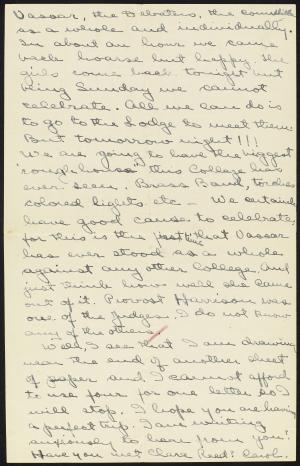 Vassar, the Debaters, the committee
as a whole and individually.
In about an hour we came
back hoarse but happy. The
girls come back tonight but
being Sunday we cannot
celebrate. All we can do is
to go to the Lodge to meet them.
But tomorrow night!!!
We are going to have the biggest
"rough-house" this College has
ever seen. Brass Band, torches
colored lights etc — We certainly
have good cause to celebrate,
for this is the first time that Vassar
has ever stood as a whole
against any other College. And
just think how well she came
out of it. Provost Harrison was
one of the Judges. I do not know
any of the others.
Well, I see that I am drawing
near the end of another sheet
of paper and I cannot afford
to use four for one letter so I
will stop. I hope you are having
a perfect trip. I am waiting
anxiously to hear from you.
Have you met Clara Reed's